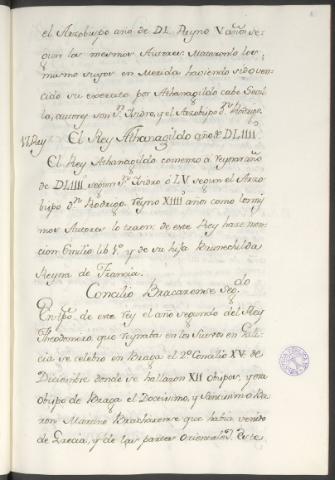 el Arzobispo año de DL Reyno V años se-
gun los mesmos Autores Mataronlo los
mismo suyos en Merida haviendo sido ven-
cido su exercito por Athanagildo cabe Sevi-
lla, autores son Sn. Isidro, y el Arzobispo Dn. Rodrigo.
VI Rey El Rey Athanagildo año de DLIIII.
El Rey Athanagildo comenzo á reynar año
de DLIIII segun Sn. Isidro ó LV segun el Arzo-
bispo Dn. Rodrigo. reyno XIIII años como los mis-
mos Autores lo traen: de este Rey hace men-
cion Emilio lib 1º. y de su hija Brunechilda
Reyna de Francia.
Concilio Bracarense Segdo
En tpo. de este rey el año segundo del Rey
Theodomiro que reynaba en los Suevos en Gali-
cia se celebro en Braga el 2º Concilio XV de
Diciembre donde se hallaron XII obispos, y era
obispo de Braga el Doctisimo, y Santisimo Ba-
ron Martino Bracharense que habia venido
de Grecia, y de las partes Orientales.